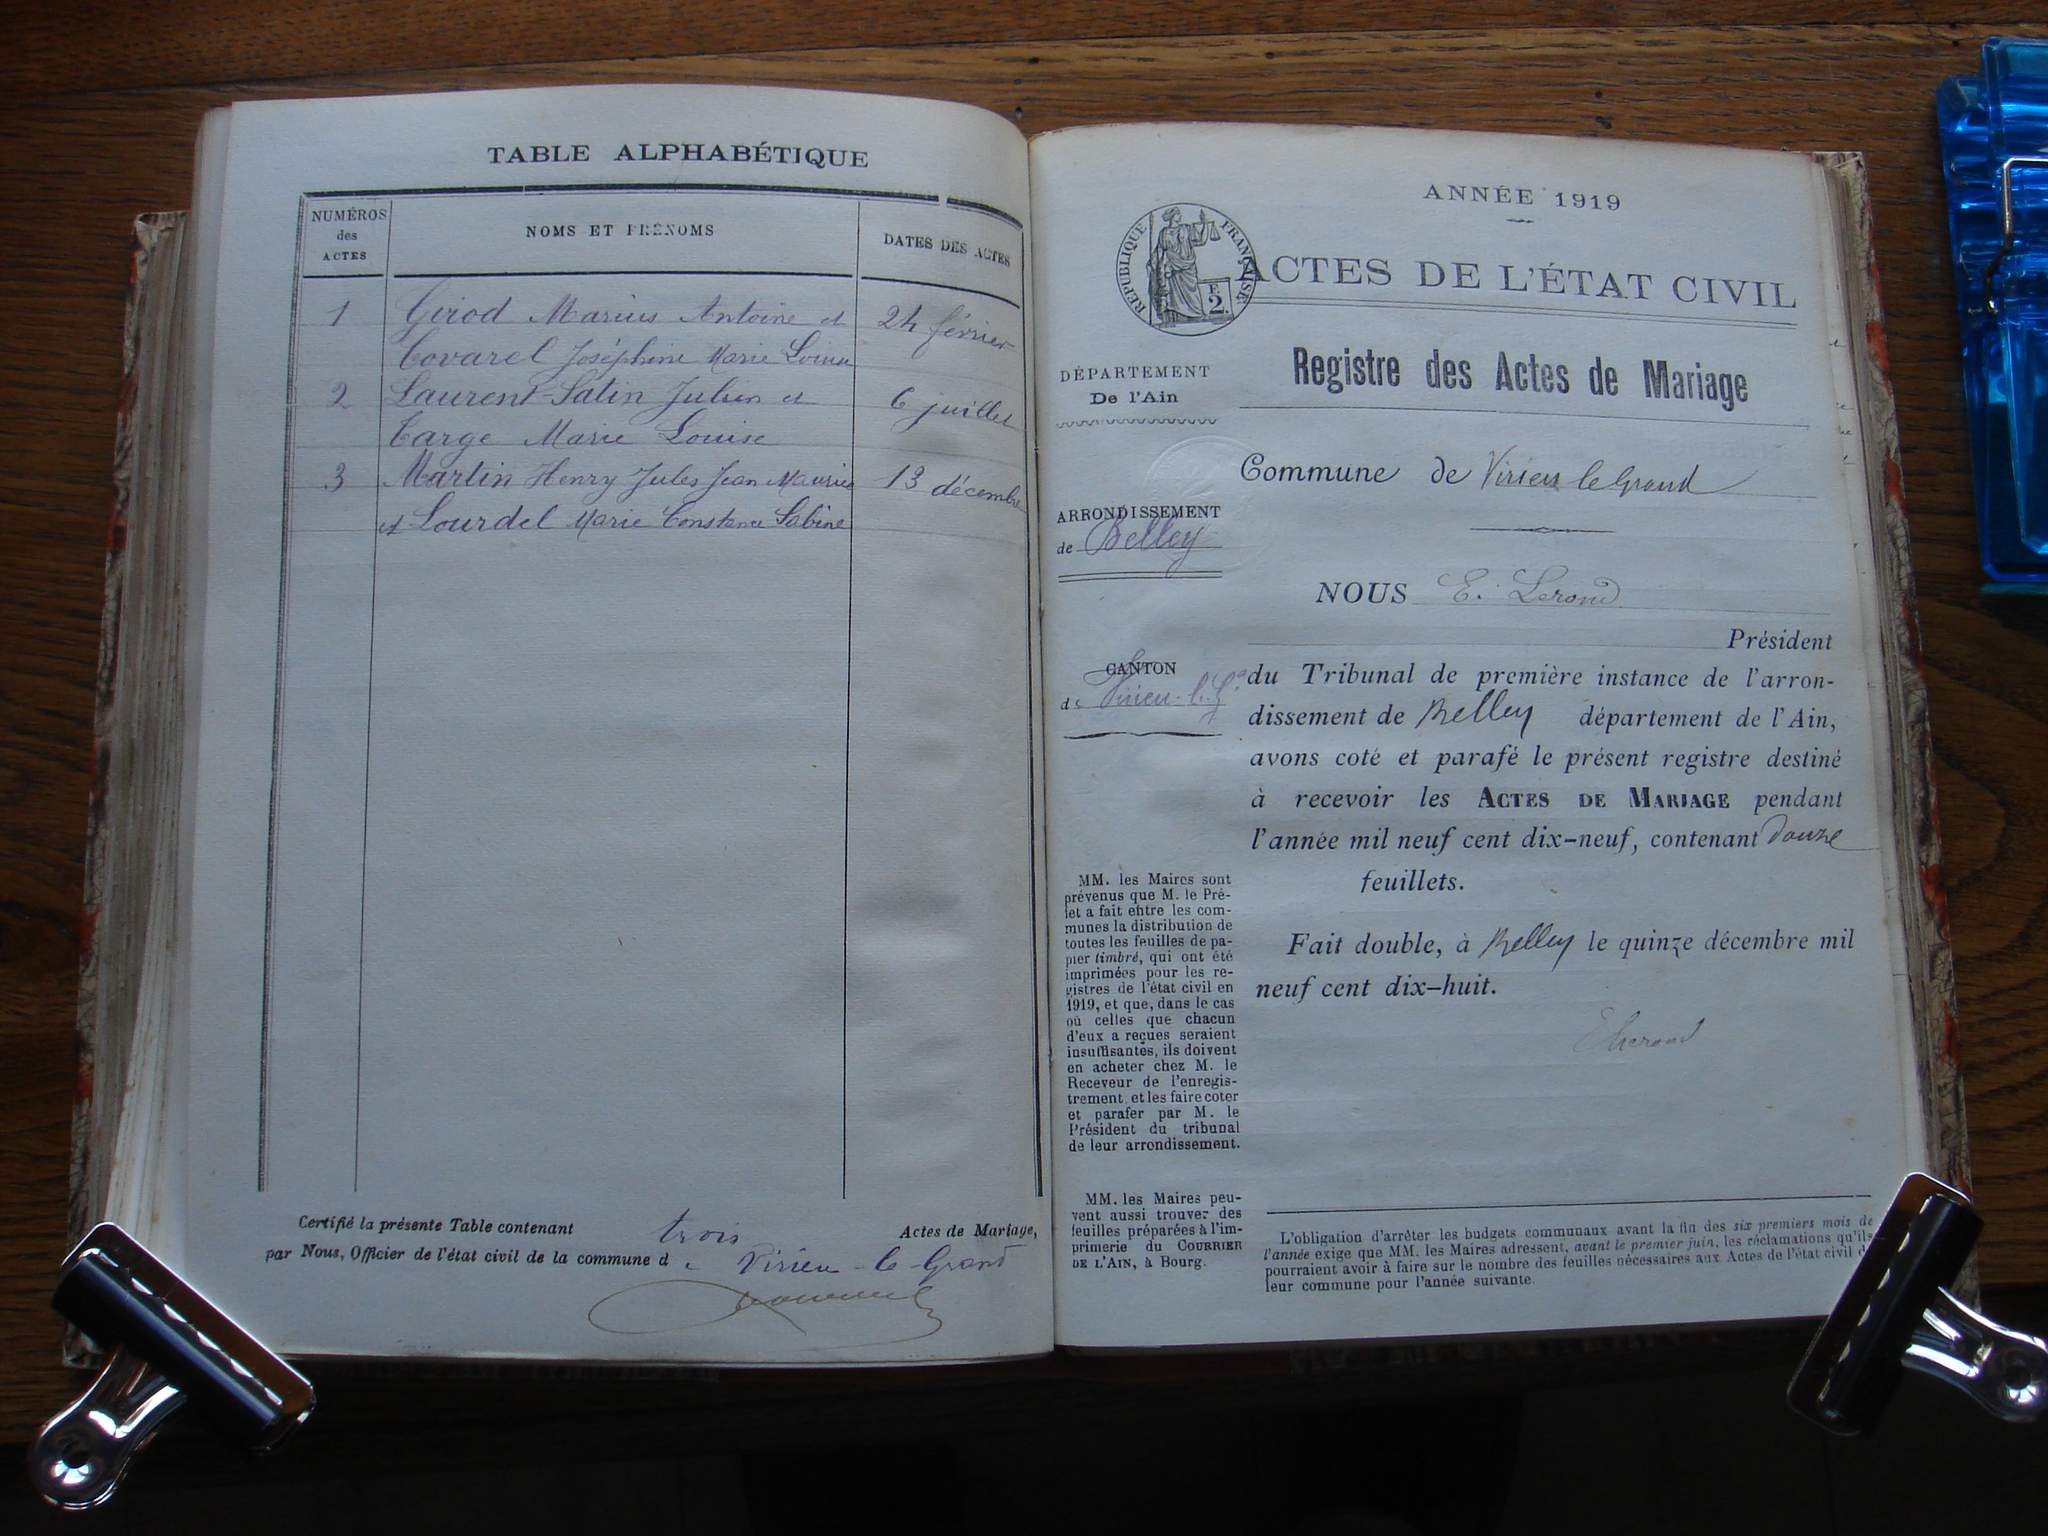 TABLE ALPHABÉTIQUE
NUMÉROS
des
ACTES
NOMS ET PRÉNOMS
DATES DES ACTES
1 Girod Marius Antoine et 24 février
Covarel Joséphine Marie
2 Laurent-Satin Julien et 6 juillet
Targe Marie Louise
3 Martin Henry Jules Jean Maurice 13 décembre
et Lourdel Marie Constance Sabine
Certifié la présente Table contenant trois Actes de Mariage,
par Nous, Officier de l'état civil de la commune d e Virieu-le-Grand
ANNÉE 1919
RÉPUBLIQUE FRANÇAISE
F.
2.
ACTES DE L'ÉTAT CIVIL
Registre des Actes de Mariage
DÉPARTEMENT
De l'Ain
Commune de Virieu le Grand
ARRONDISSEMENT
de Belley
NOUS E. Lerond
Président
CANTON
de Virieu-l.-Gd
du Tribunal de première instance de l'arron-
dissement de Belley département de l'Ain,
avons coté et parafé le présent registre destiné
à recevoir les ACTES DE MARIAGE pendant
l'année mil neuf cent dix-neuf, contenant douze
feuillets.
Fait double, à Belley le quinze décembre mil
neuf cent dix-huit.
ELerond
MM. les Maires sont
prévenus que M. le Pré-
fet a fait entre les com-
munes la distribution de
toutes les feuilles de pa-
pier timbré, qui ont été
imprimées pour les re-
gistres de l'état civil en
1919, et que, dans le cas
où celles que chacun
d'eux a reçues seraient
insuffisantes, ils doivent
en acheter chez M. le
Receveur de l'enregis-
trement, et les faire coter
et parafer par M. le
Président du tribunal
de leur arrondissement.
MM. les Maires peu-
vent aussi trouver des
feuilles préparées à l'im-
primerie du COURRIER
DE L'AIN, à Bourg.
L'obligation d'arrêter les budgets communaux avant la fin des six premiers mois de
l'année exige que MM. les Maires adressent, avant le premier juin, les réclamations qu'ils
pourraient avoir à faire sur le nombre des feuilles nécessaires aux Actes de l'état civil de
leur commune pour l'année suivante.